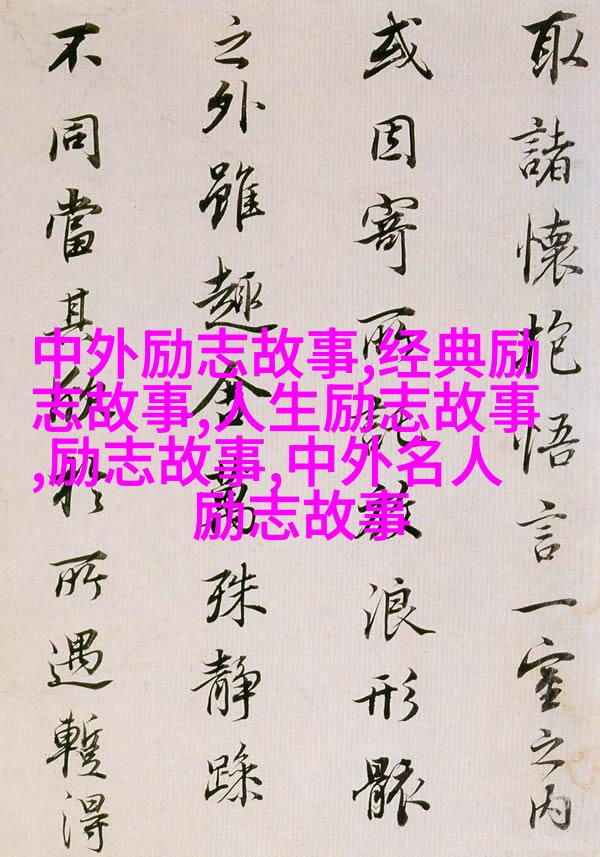 取諸懷抱悟言一室之内
或因寄所託放浪形骸
之外雖趣舍萬殊静躁
不同當其欣於所遇蹔得
中外励志故事,经典励
志故事,人生励志故事
,励志故事,中外名人
励志故事